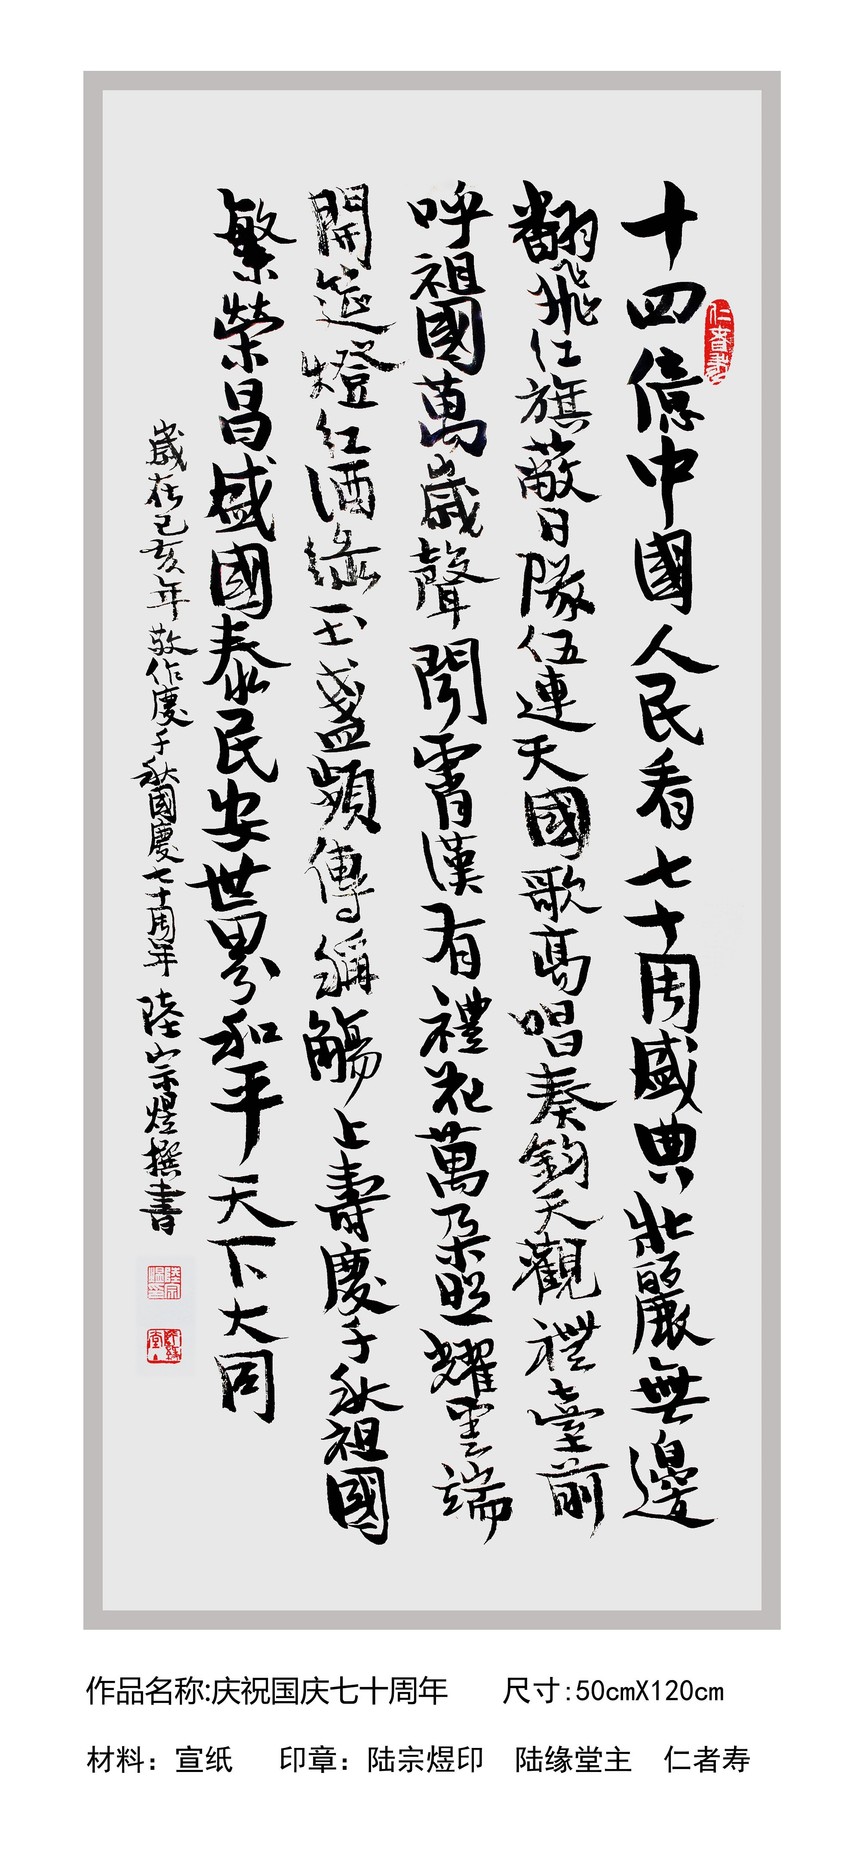 十四億中國人民看七十周盛典壯麗無邊
翻飛红旗蔽日隊伍連天國歌高唱奏鈞天觀禮臺前
呼祖國萬歲聲聞霄漢有禮花萬朵照耀雲端
開筵燈红酒綠玉盞頻傳稱觴上壽慶千秋祖國
繁榮昌盛國泰民安世界和平天下大同
歲在己亥年敬作慶千秋國慶七十周年 陸宗煜撰書
仁者壽
作品名称:庆祝国庆七十周年 尺寸:50cmX120cm
材料：宣纸 印章：陆宗煜印 陆缘堂主 仁者寿